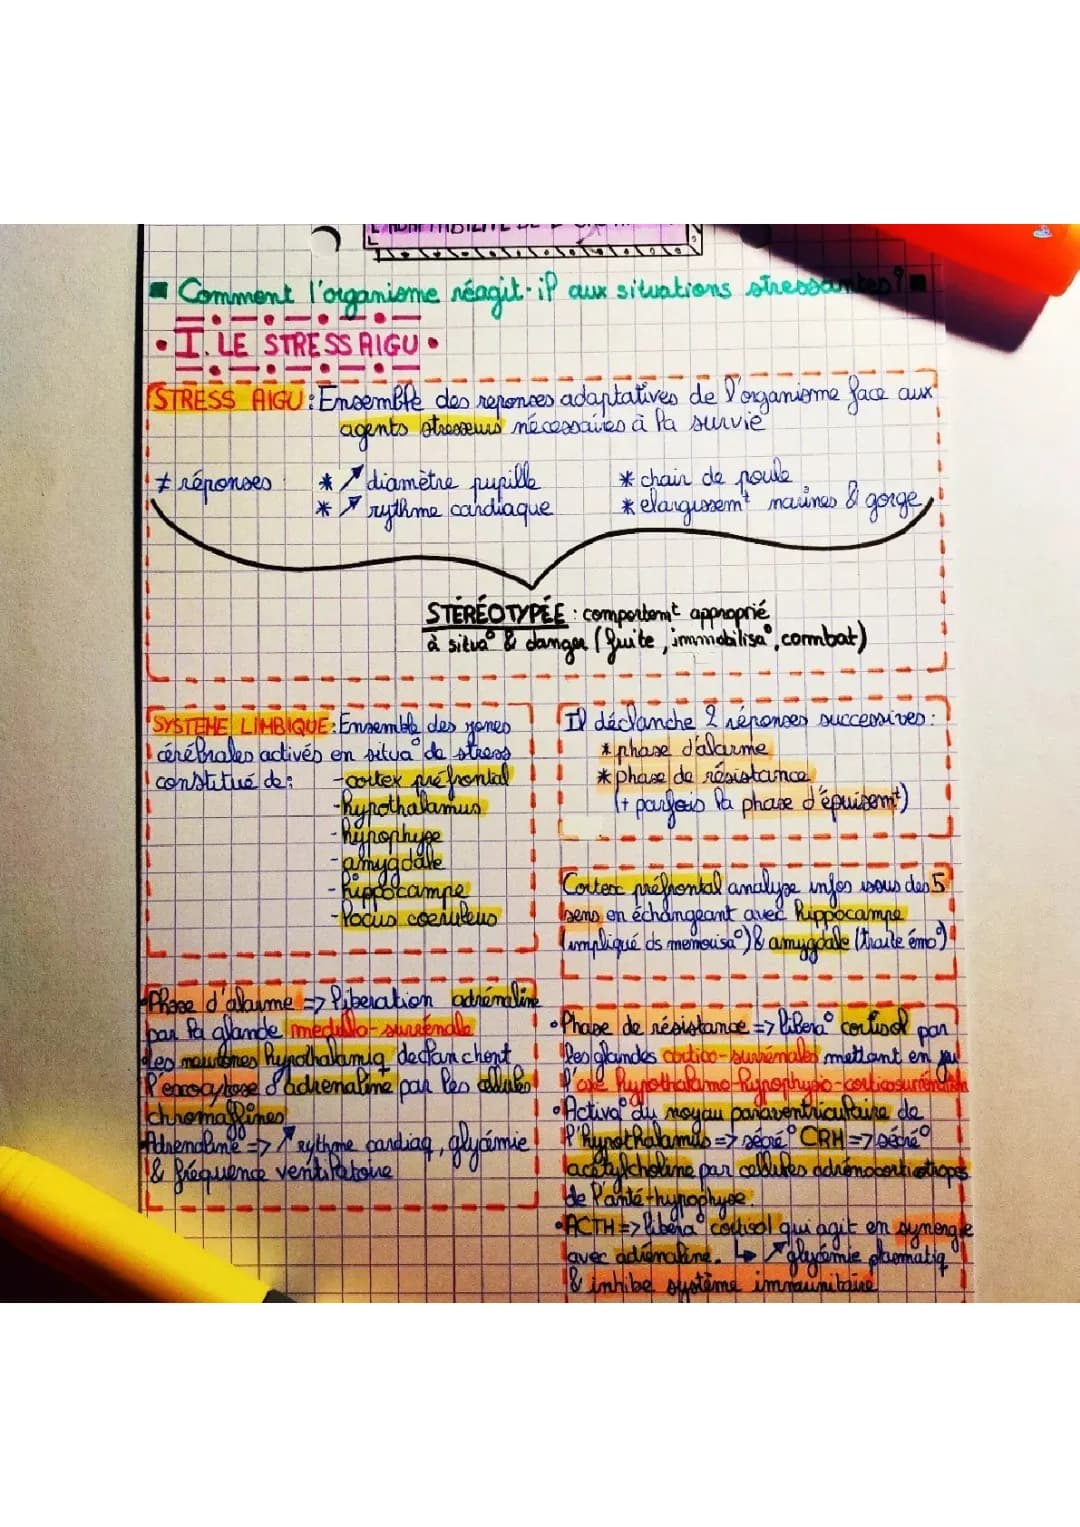 ■ Comment l'organisme réagit-il aux situations stressantes? ■
• I. LE STRESS AIGU •
STRESS AIGU : Ensemble des reponses adaptatives de l'organisme face aux
agents stresseurs nécessaires à la survie
≠ réponses : * ↗ diamètre pupille * chair de poule
* ↗ rythme cardiaque * elargissemt narines & gorge
STÉRÉOTYPÉE : comportemt approprié
à situa° & danger (fuite, immobilisa°, combat)
SYSTEME LIMBIQUE : Ensemble des zones
cérébrales activés en situa° de stress
constitué de : - cortex préfrontal
- hypothalamus
- hypophyse
- amygdale
- hippocampe
- locus coeruleus
Il déclanche 2 réponses successives :
* phase d'alarme
* phase de résistance
(+ parfois la phase d'épuisemt)
Cortex préfrontal analyse infos issus des 5
sens en échangeant avec hippocampe
(impliqué ds memorisa°) & amygdale (traite émo°)
• Phase d'alarme => liberation adrénaline
par la glande medullo-surrénale
des neurones hypothalamiq declanchent
l'exocytose d'adrenaline par les cellules
chromaffines
• Adrenaline => ↗ rythme cardiaq, glycémie
& fréquence ventilatoire
• Phase de résistance => libera° cortisol par
les glandes cortico-surrénales mettant en jeu
l'axe hypothalamo-hypophyso-corticosurrénalien
• Activa° du noyau paraventriculaire de
l'hypothalamus => sécré° CRH => sécré°
acétylcholine par cellules adrénocorticotropes
de l'anté-hypophyse.
• ACTH => libera° cortisol qui agit en synergie
avec adrénaline. ↳ ↗ glycémie plasmatiq
& inhibe système immunitaire